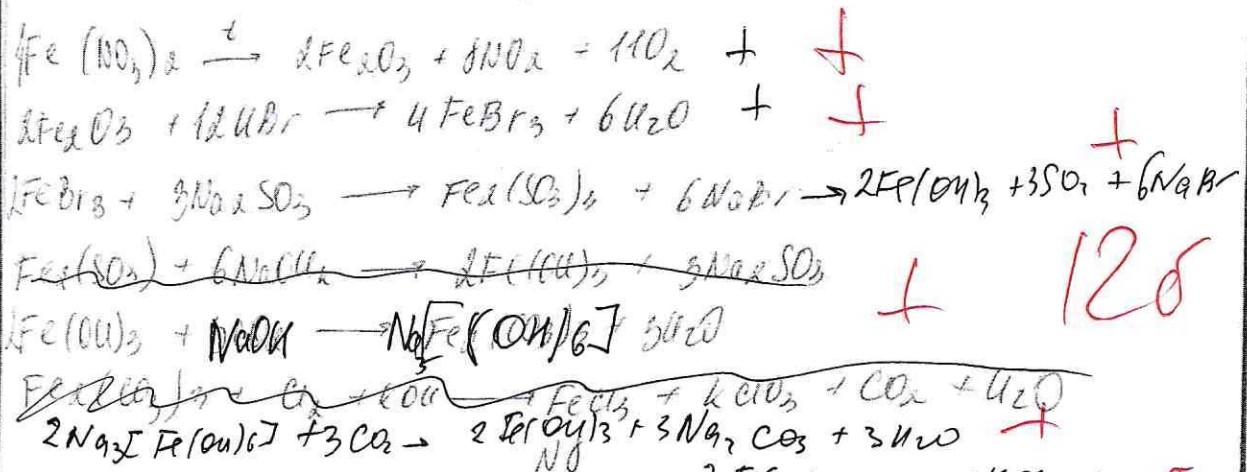 4Fe(NO3)2 t→ 2Fe2O3 + 8NO2 + 11O2 + +
2Fe2O3 + 12HBr → 4FeBr3 + 6H2O + +
2FeBr3 + 3Na2SO3 → Fe2(SO3)3 + 6NaBr → 2Fe(OH)3 + 3SO2 + 6NaBr +
Fe2(SO3) + 6NaOH → 2Fe(OH)3 + 3Na2SO3
12б
2Fe(OH)3 + NaOH → Na3[Fe(OH)6] 3H2O +
+ Cl2 + KOH → FeCl3 + KClO3 + CO2 + H2O
2Na3[Fe(OH)6] + 3CO2 → 2Fe(OH)3 + 3Na2CO3 + 3H2O +